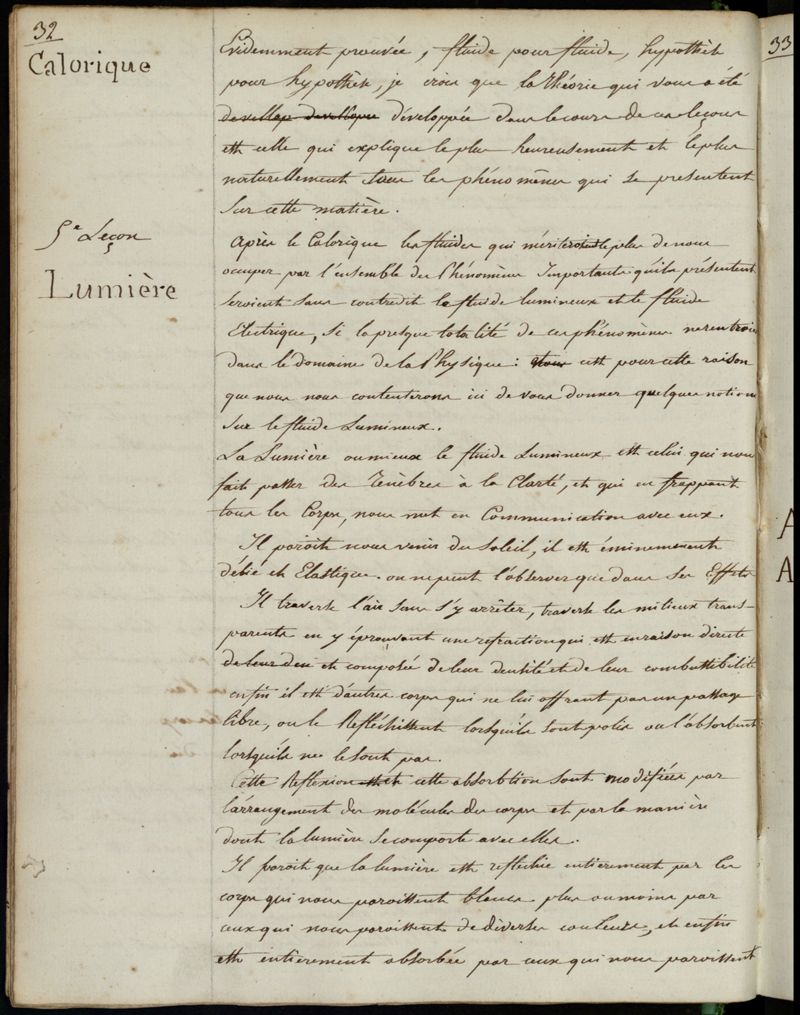 32
Calorique
Evidemment prouvée, fluide pour fluide, hypothèse
pour hypothèse, je crois que la théorie qui vous a été
développée dans le cours de ces leçons
est celle qui explique le plus heureusement et le plus
naturellement tous les phénomènes qui se presentent
sur cette matière.
5e Leçon
Lumière
Après le Calorique les fluides qui mériteroient le plus de nous
occuper par l'ensemble des Phénomènes Importants qu'ils présentent
seroient sans contredit le fluide lumineux et le fluide
Electrique, si la presque totalité de ces phénomènes ne rentroient
dans le domaine de la Physique: c'est pour cette raison
que nous nous contenterons ici de vous donner quelques notions
sur le fluide Lumineux.
La Lumière ou mieux le fluide Lumineux est celui qui nous
fait passer des Ténèbres à la Clarté, et qui en frappant
tous les Corps, nous met en Communication avec eux.
Il paroît nous venir du Soleil, il est éminemment
délié et Elastique. on ne peut l'observer que dans ses Effets
Il traverse l'air sans s'y arrêter, traverse les milieux trans-
parents en y éprouvant une refraction qui est en raison directe
et composée de leur densité et de leur combustibilité
enfin il est d'autres corps qui ne lui offrant pas un passage
libre, ou le Refléchissent lorsqu'ils sont polis ou l'absorbent
lorsqu'ils ne le sont pas.
Cette Reflexion cette absorbtion sont modifiées par
l'arrangement des molécules des corps et par la manière
dont la lumière se comporte avec elles.
Il paroît que la lumière est reflechie entierement par les
corps qui nous paroissent blancs plus ou moins par
ceux qui nous paroissent de diverses couleurs, et enfin
est entierement absorbée par ceux qui nous paroissent
33
A
A